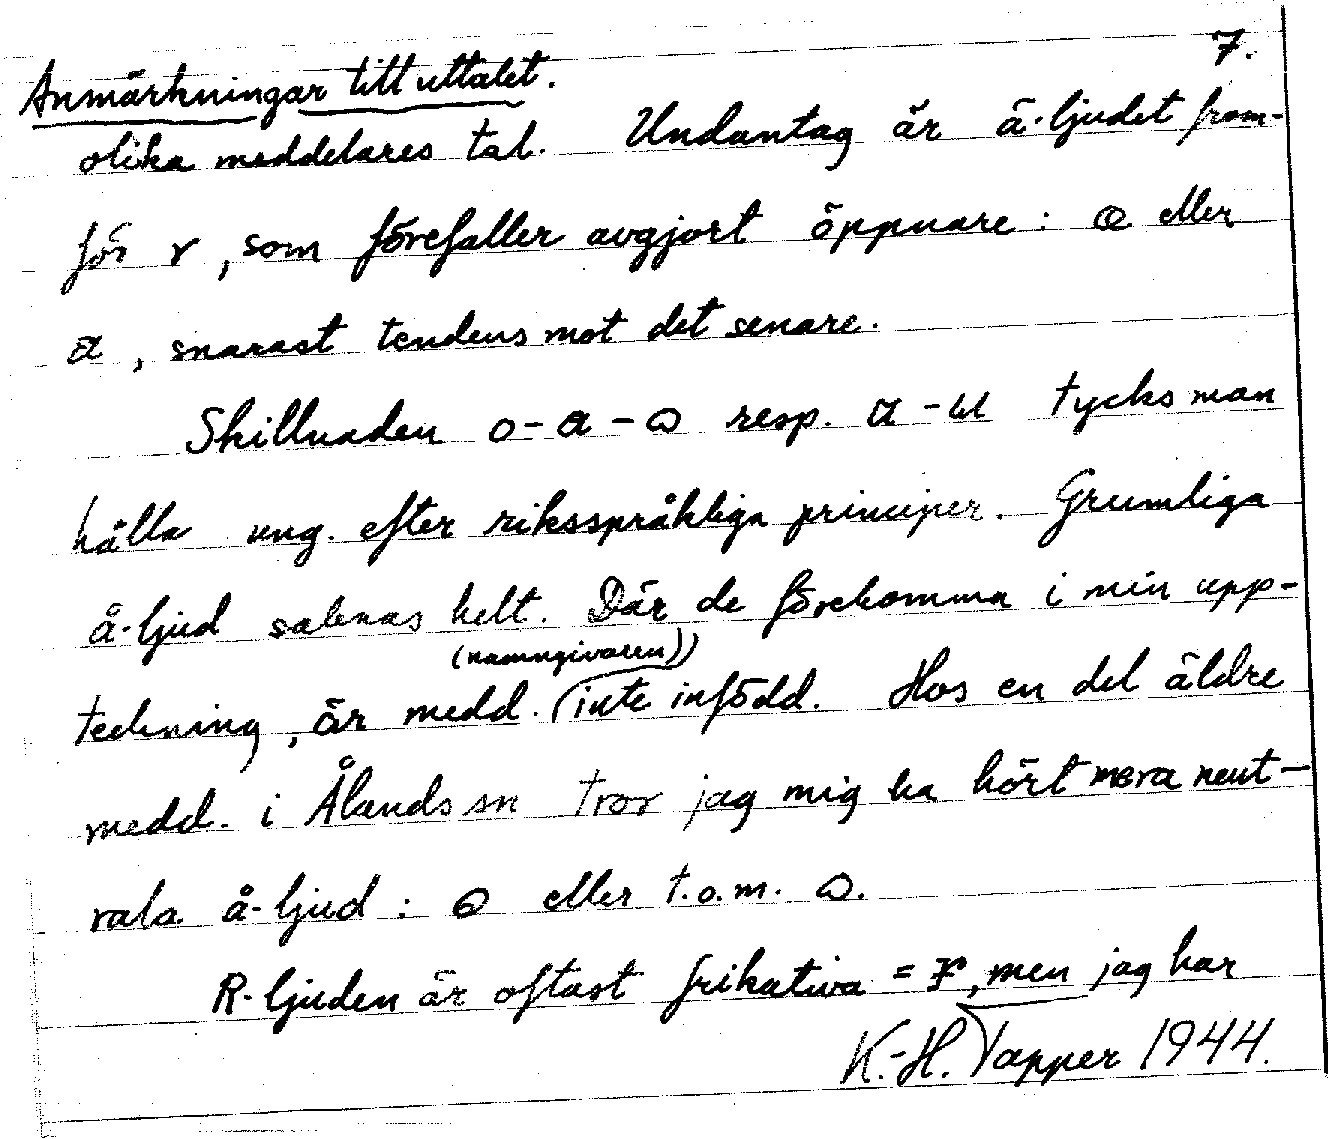 7.
Anmärkningar till uttalet.
olika meddelares tal. Undantag är ä-ljudet fram-
för r, som förefaller avgjort öppnare: eller
, snarast tendens mot det senare.
Skillnaden o-a- resp. tycks man
hålla ung. efter riksspråkliga principer. Grumliga
å-ljud saknas helt. Där de förekomma i min upp-
(namngivaren))
teckning, är medd. (inte infödd. Hos en del äldre
medd. i Ålands sn tror jag mig ha hört mera neut-
rala å-ljud: eller t.o.m.
R-ljuden är oftast frikativa = , men jag har
K.-H. Tapper 1944.